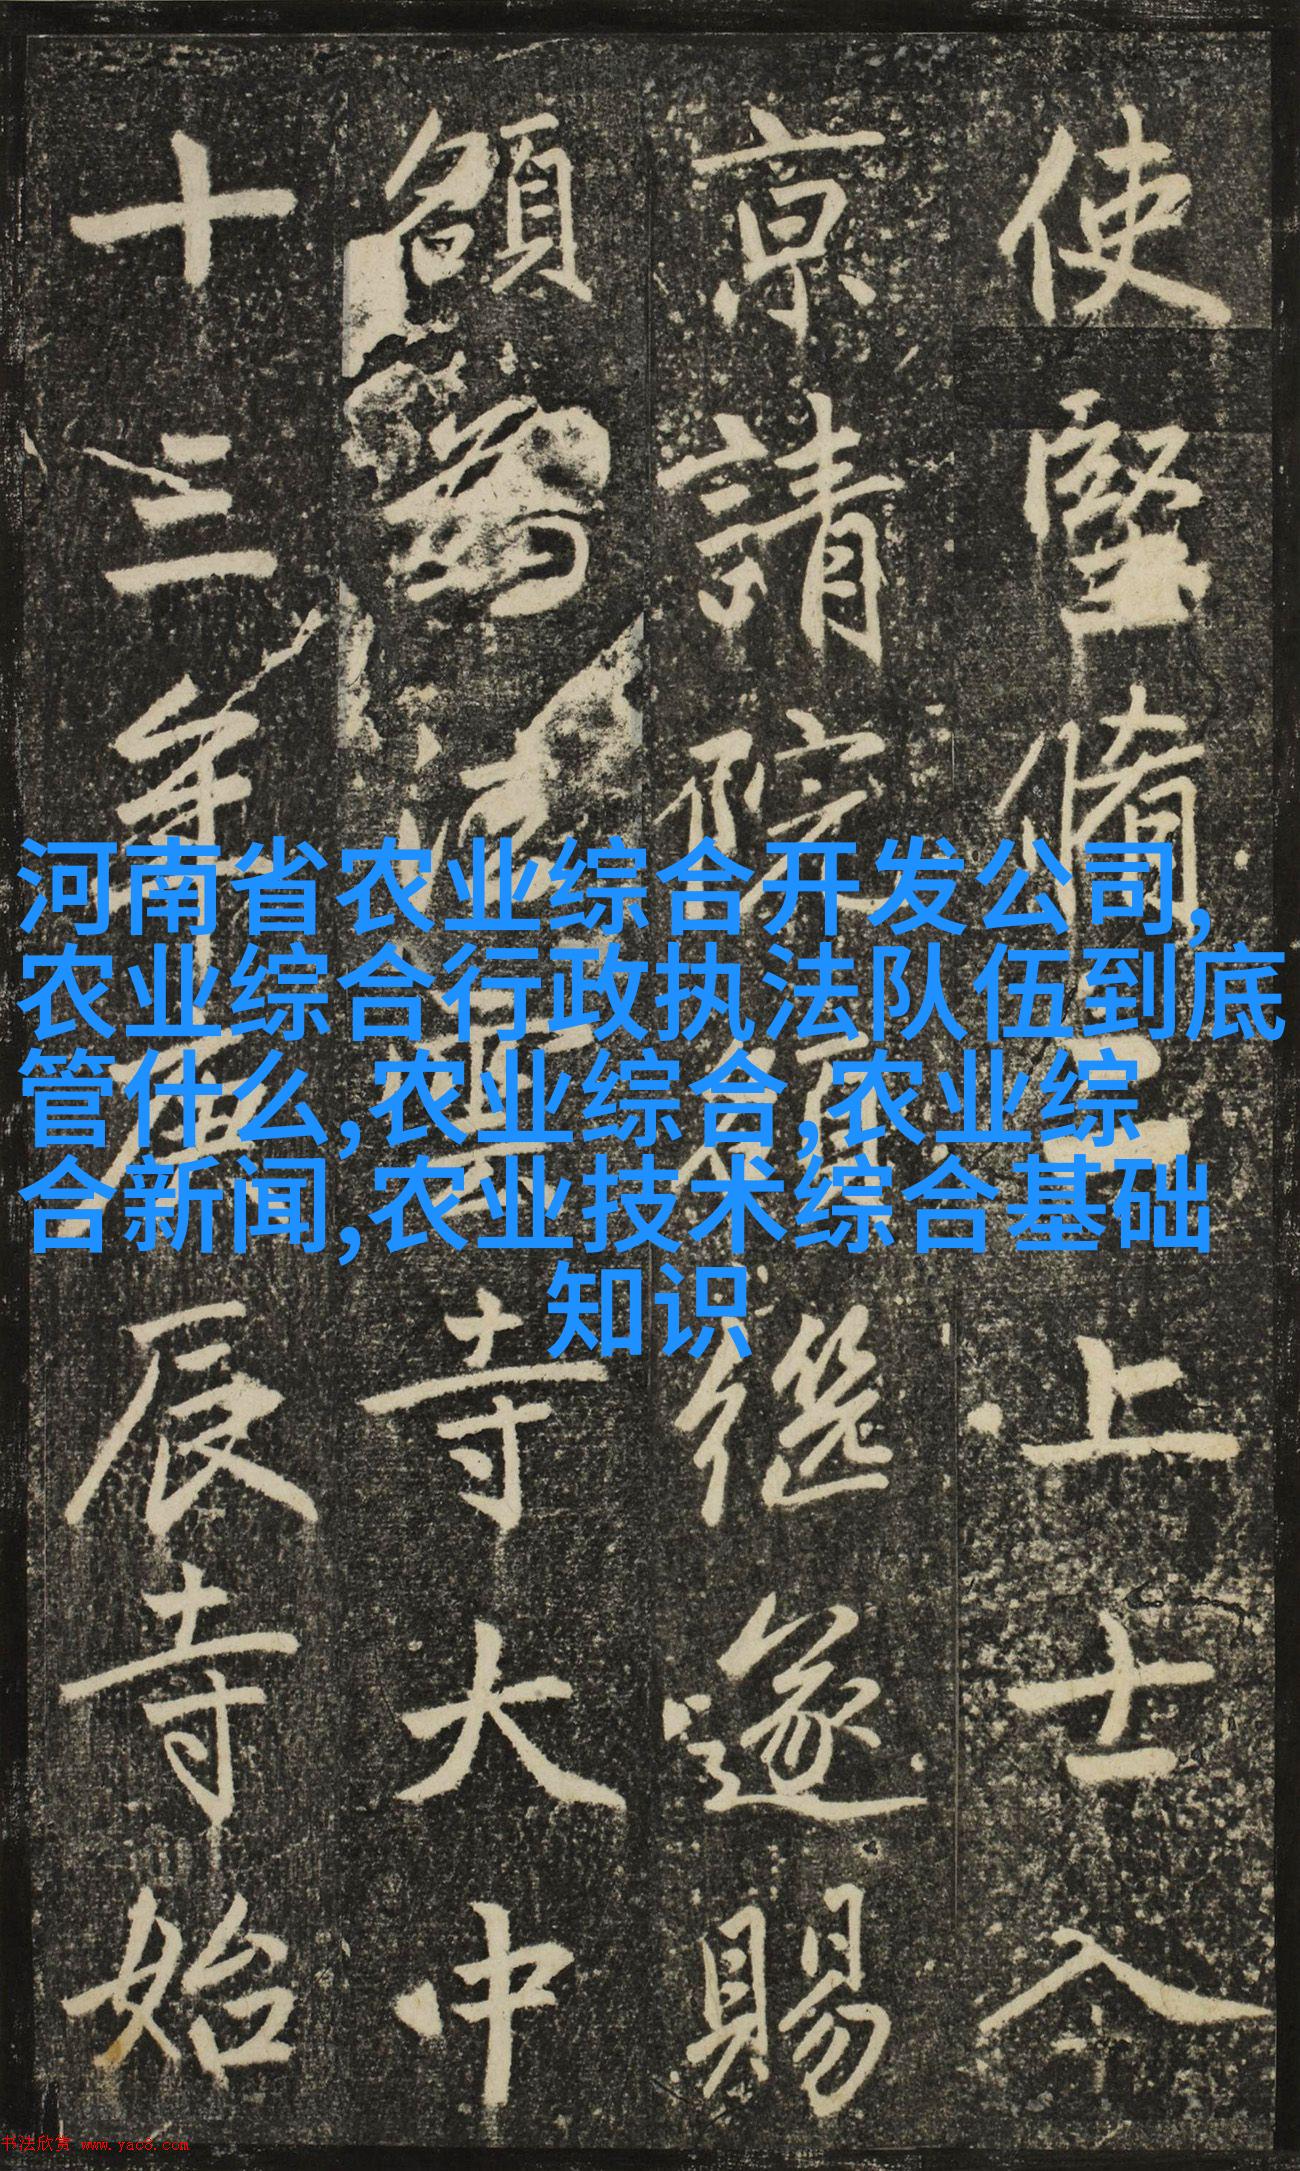 河南省农业综合开发公司,
农业综合行政执法队伍到底
管什么,农业综合,农业综
合新闻,农业技术综合基础
知识
使堅脩上士入
京請院繼遂賜
額為寺大中
十三年辰寺始
书法欣赏 www.yac8.com